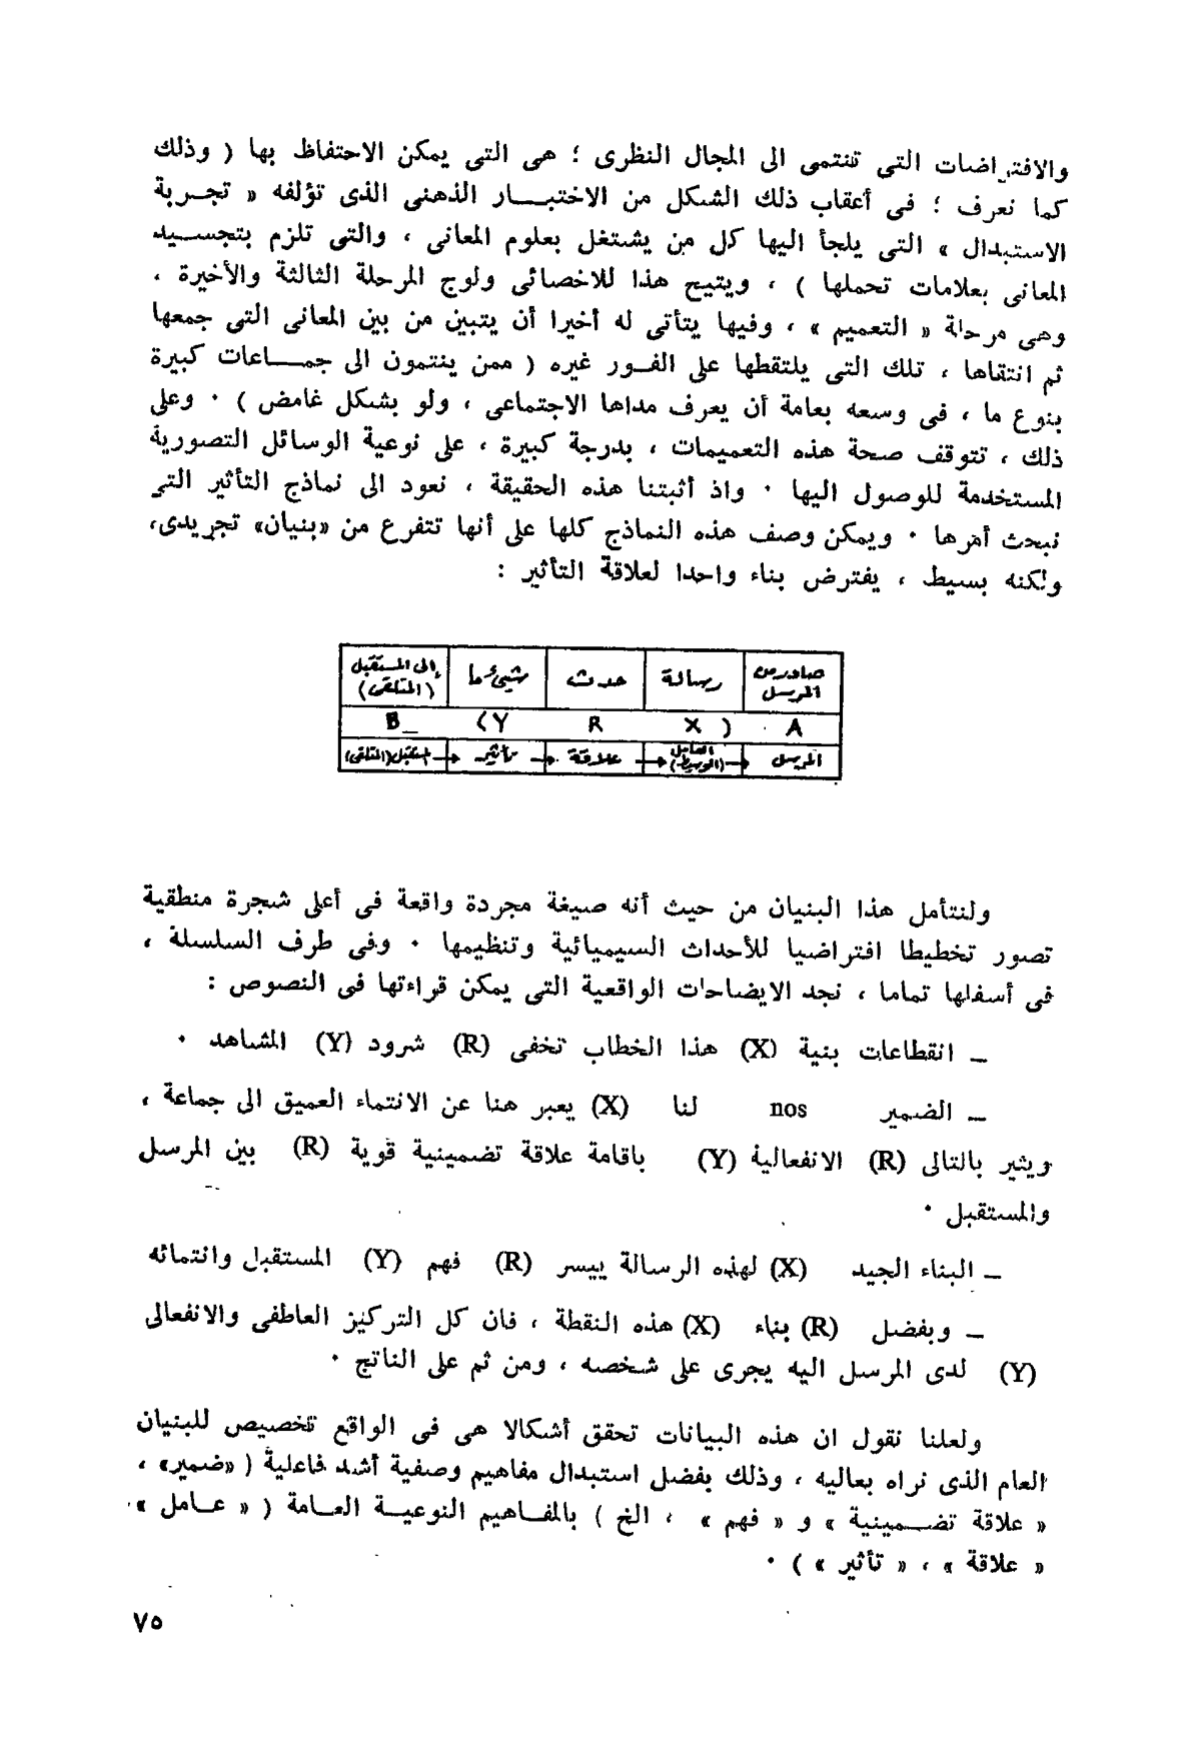 والافتراضات التى تنتمى الى المجال النظرى ؛ هى التى يمكن الاحتفاظ بها ( وذلك
كما نعرف ؛ فى أعقاب ذلك الشكل من الاختبـــار الذهنى الذى تؤلفه « تجـربة
الاستبدال » التى يلجأ اليها كل من يشتغل بعلوم المعانى ، والتى تلزم بتجســيد
المعانى بعلامات تحملها ) ، ويتيح هذا للاخصائى ولوج المرحلة الثالثة والأخيرة ،
وهى مرحلة « التعميم » ، وفيها يتأتى له أخيرا أن يتبين من بين المعانى التى جمعها
ثم انتقاها ، تلك التى يلتقطها على الفـور غيره ( ممن ينتمون الى جمــاعات كبيرة
بنوع ما ، فى وسعه بعامة أن يعرف مداها الاجتماعى ، ولو بشكل غامض ) ٠ وعلى
ذلك ، تتوقف صحة هذه التعميمات ، بدرجة كبيرة ، على نوعية الوسائل التصورية
المستخدمة للوصول اليها ٠ واذ أثبتنا هذه الحقيقة ، نعود الى نماذج التأثير التى
نبحث أمرها ٠ ويمكن وصف هذه النماذج كلها على أنها تتفرع من «بنيان» تجريدى،
ولكنه بسيط ، يفترض بناء واحدا لعلاقة التأثير :
صادر من المرسل رسالة حدث شىء ما إلى المستقبل (المتلقى)
A ( X R Y ) B
المرسل → العامل (الوسيط) → علاقة → تأثير → المستقبل (المتلقى)
ولنتأمل هذا البنيان من حيث أنه صيغة مجردة واقعة فى أعلى شجرة منطقية
تصور تخطيطا افتراضيا للأحداث السيميائية وتنظيمها ٠ وفى طرف السلسلة ،
فى أسفلها تماما ، نجد الايضاحات الواقعية التى يمكن قراءتها فى النصوص :
ــ انقطاعات بنية (X) هذا الخطاب تخفى (R) شرود (Y) المشاهد ٠
ــ الضمير nos لنا (X) يعبر هنا عن الانتماء العميق الى جماعة ،
ويثير بالتالى (R) الانفعالية (Y) باقامة علاقة تضمينية قوية (R) بين المرسل
والمستقبل ٠
ــ البناء الجيد (X) لهذه الرسالة ييسر (R) فهم (Y) المستقبل وانتمائه
ــ وبفضل (R) بناء (X) هذه النقطة ، فان كل التركيز العاطفى والانفعالى
(Y) لدى المرسل اليه يجرى على شخصه ، ومن ثم على الناتج ٠
ولعلنا نقول ان هذه البيانات تحقق أشكالا هى فى الواقع تخصيص للبنيان
العام الذى نراه بعاليه ، وذلك بفضل استبدال مفاهيم وصفية أشد فاعلية ( «ضمير» ،
« علاقة تضــمينية » و « فهم » ، الخ ) بالمفـاهيم النوعيـة العـامة ( « عـامل » ،
« علاقة » ، « تأثير » ) ٠
٧٥